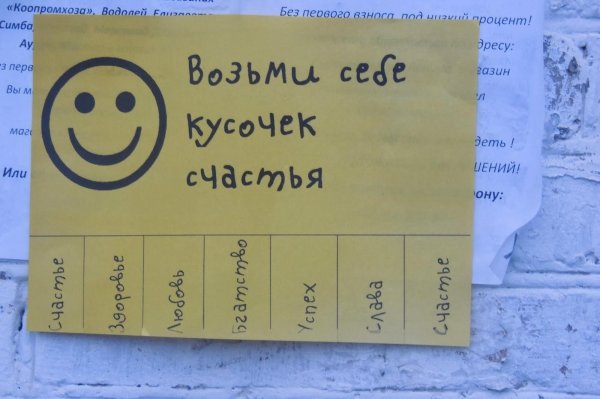 «Коопромхоза», Водолей, Елизаветы
Симба
Без первого взноса, под низкий процент!
Вы м
мага
Или
дресу:
газин
деть !
ШЕНИЙ!
ону:
Возьми себе
кусочек
счастья
Счастье
Здоровье
Любовь
Бгатство
Успех
Слава
Счастье